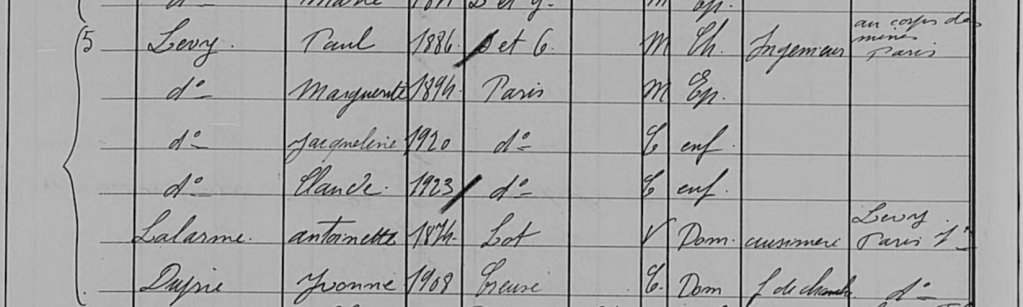 5 Levy. Paul 1886 S et O. M Ch. Ingenieur au corps des mines Paris
do Marguerite 1894 Paris M Ep.
do Jacqueline 1920 do C enf.
do Claude. 1923 do C enf.
Lalarme. antoinette 1874. Lot V Dom. cuisiniere Levy. Paris
Yvonne 1908 Creuse C. Dom f de chamb. do